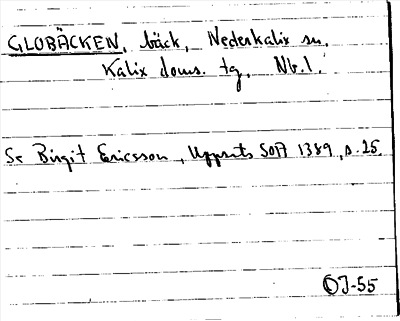 GLOBÄCKEN, bäck, Nederkalix sn,
Kalix doms. tg, Nb.l.
Se Birgit Ericsson, Uppsats SOFI 1389, s. 25.
OJ-55